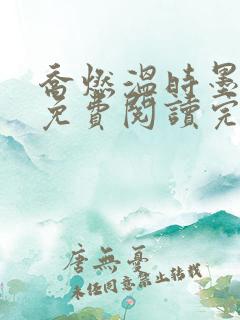 喬燃溫時墨
免費閱讀完
唐無憂
未经同意禁止转载